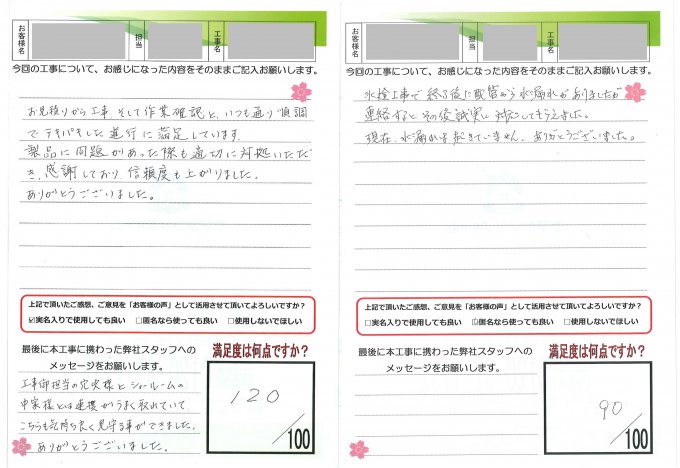 お客様名
担当
工事名
今回の工事について、お感じになった内容をそのままご記入お願いします。
お見積りから工事 そして作業確認と、いつも通り順調
でテキパキした進行に満足しています。
製品に問題があった際も適切に対処いただ
き、感謝しており、信頼度も上がりました。
ありがとうございました。
上記で頂いたご感想、ご意見を「お客様の声」として活用させて頂いてよろしいですか？
☑実名入りで使用しても良い □匿名なら使っても良い □使用しないでほしい
最後に本工事に携わった弊社スタッフへの
メッセージをお願いします。
工事御担当の穴吹様とショールームの
中家様とは連携がうまく取れていて
こちらも気持ち良く見守る事ができました。
ありがとうございました。
満足度は何点ですか？
120
/100
お客様名
担当
工事名
今回の工事について、お感じになった内容をそのままご記入お願いします。
水栓工事で終了後に配管から水漏れがありましたが
連絡するとその後誠実に対応してもらえました。
現在、水漏れは起きていません。ありがとうございました。
上記で頂いたご感想、ご意見を「お客様の声」として活用させて頂いてよろしいですか？
□実名入りで使用しても良い ☑匿名なら使っても良い □使用しないでほしい
最後に本工事に携わった弊社スタッフへの
メッセージをお願いします。
満足度は何点ですか？
90
/100